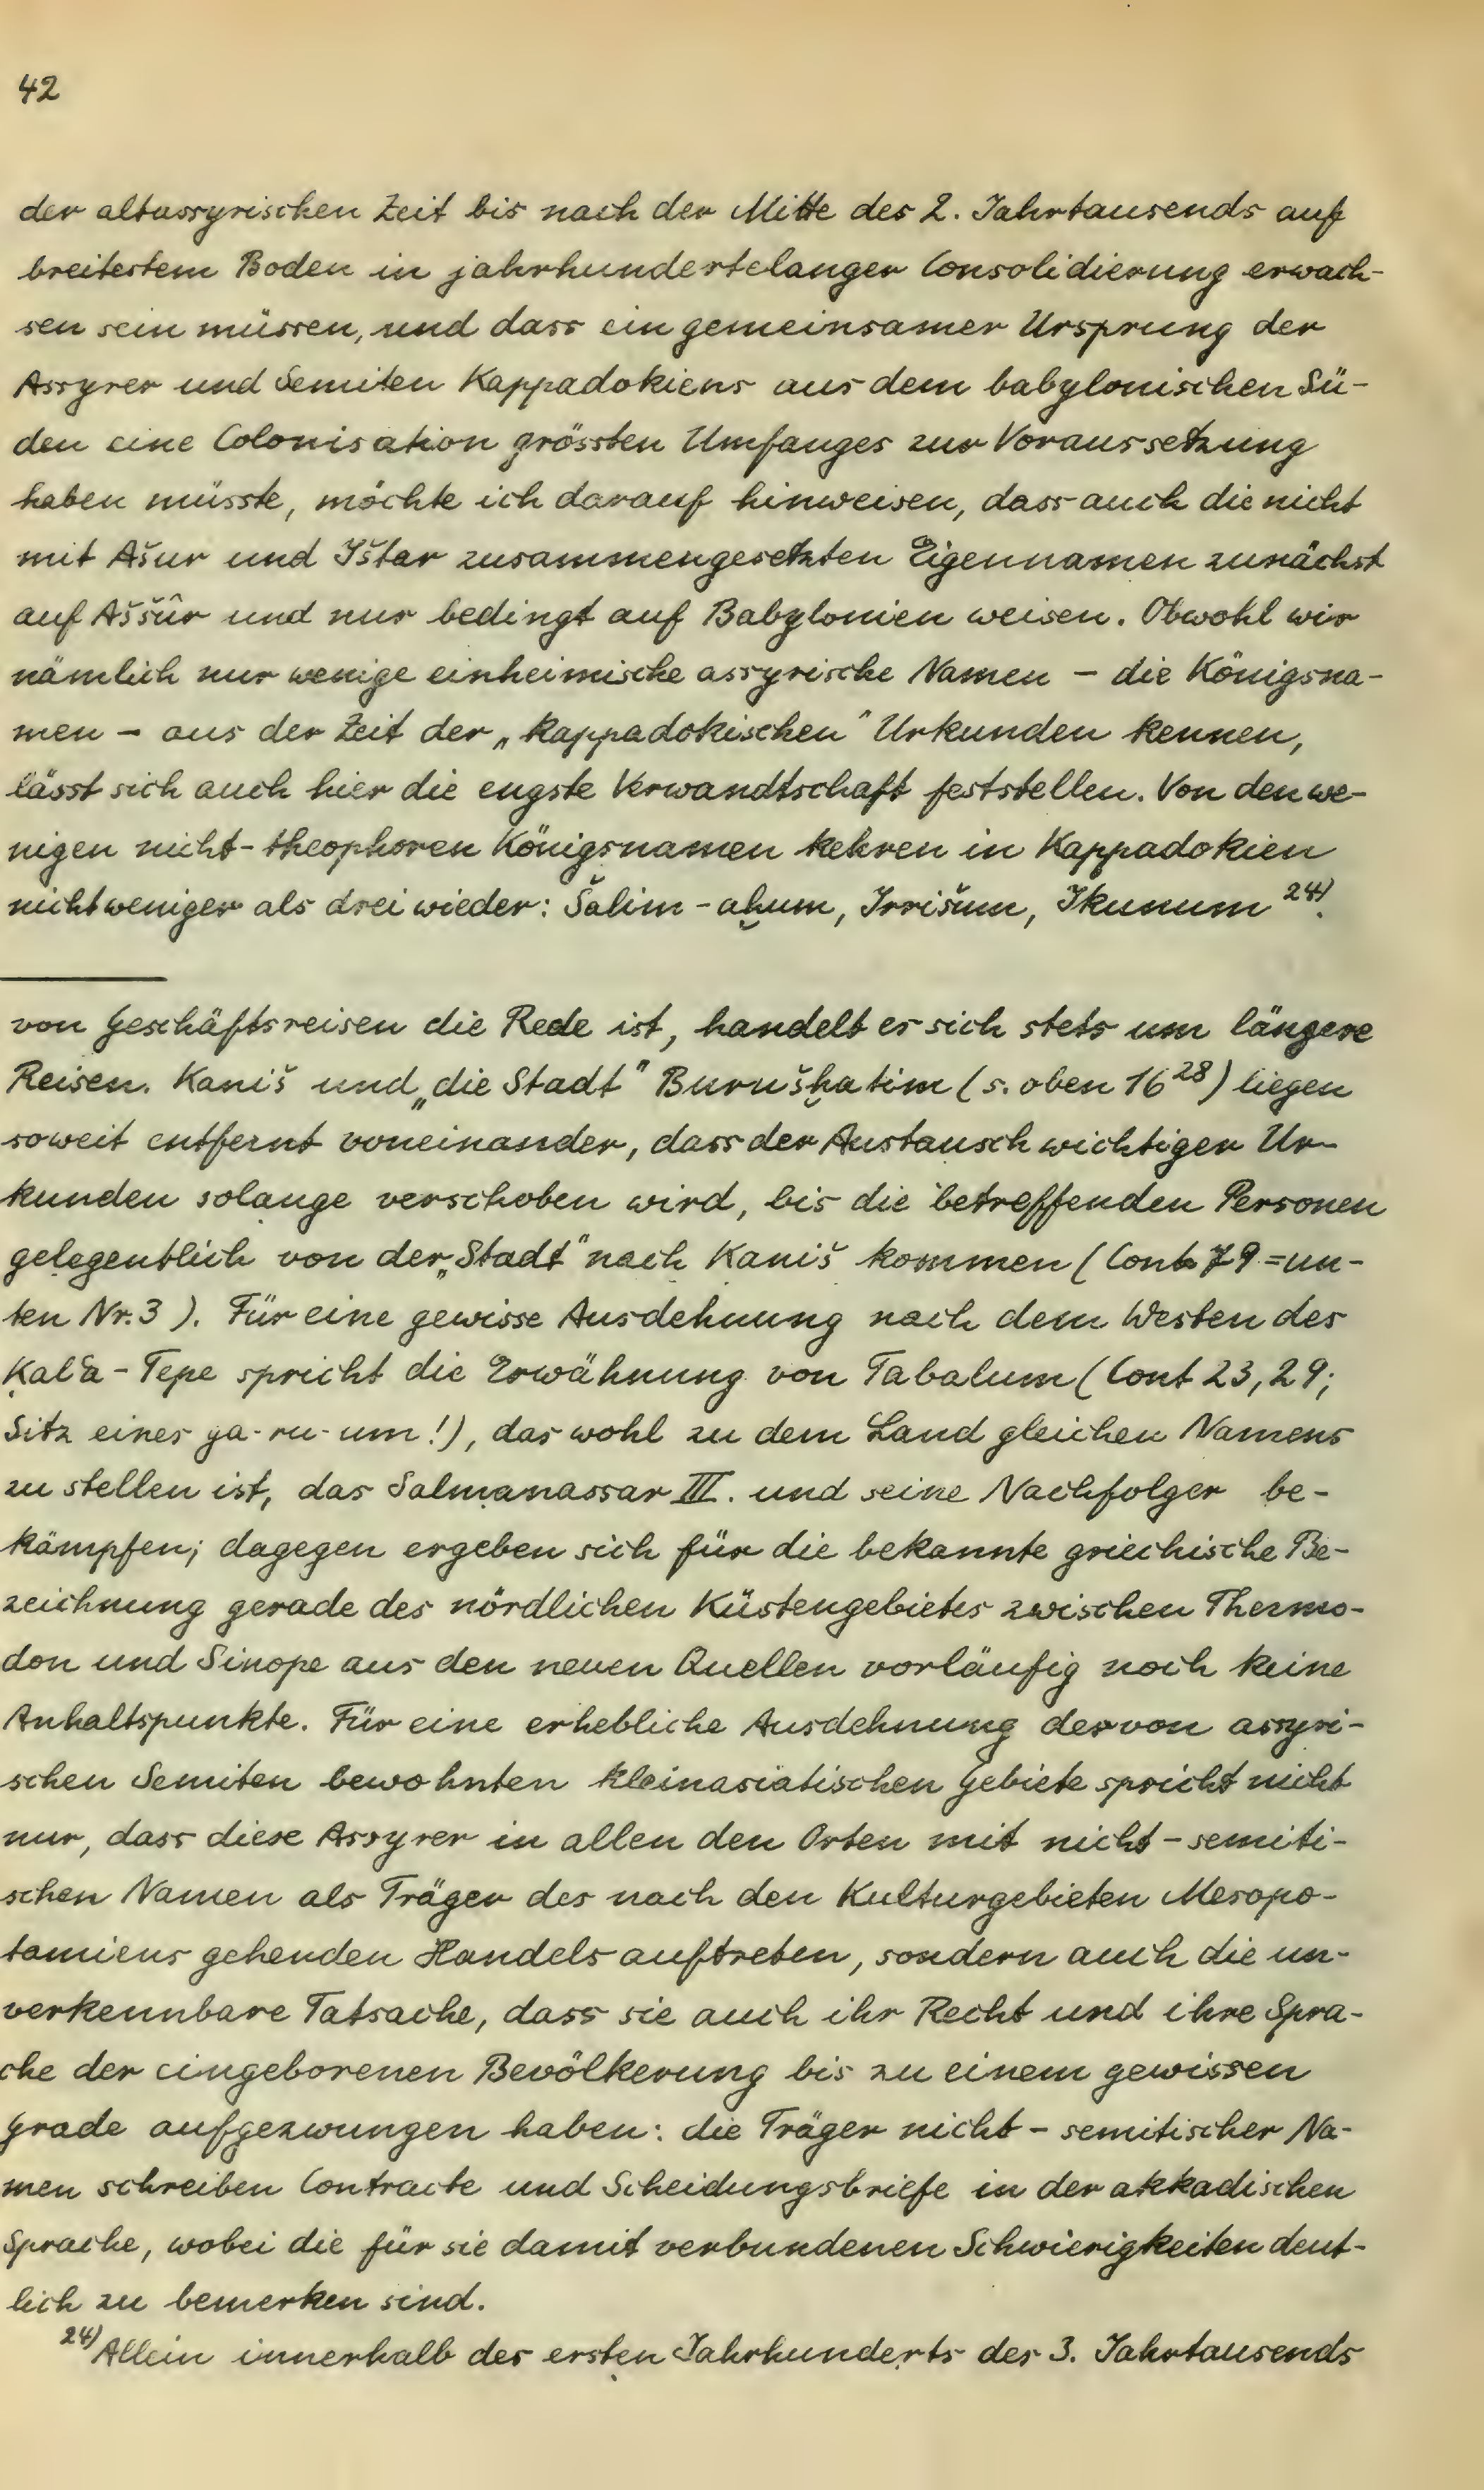 42
der altassyrischen Zeit bis nach der Mitte des 2. Jahrtausends auf
breitestem Boden in jahrhundertelanger Consolidierung erwach-
sen sein müssen, und dass ein gemeinsamer Ursprung der
Assyrer und Semiten Kappadokiens aus dem babylonischen Sü-
den eine Colonisation grössten Umfanges zur Voraussetzung
haben müsste, möchte ich darauf hinweisen, dass auch die nicht
mit Ašur und Ištar zusammengesetzten Eigennamen zunächst
auf Aššûr und nur bedingt auf Babylonien weisen. Obwohl wir
nämlich nur wenige einheimische assyrische Namen – die Königsna-
men – aus der Zeit der „kappadokischen" Urkunden kennen,
lässt sich auch hier die engste Verwandtschaft feststellen. Von den we-
nigen nicht-theophoren Königsnamen kehren in Kappadokien
nicht weniger als drei wieder: Šalim-aḫum, Irrišum, Ikunum 24).
von Geschäftsreisen die Rede ist, handelt es sich stets um längere
Reisen. Kaniš und „die Stadt" Burušḫatim (s. oben 16 28) liegen
soweit entfernt voneinander, dass der Austausch wichtiger Ur-
kunden solange verschoben wird, bis die betreffenden Personen
gelegentlich von der „Stadt" nach Kaniš kommen (Cont 79 = un-
ten Nr. 3). Für eine gewisse Ausdehnung nach dem Westen des
Ḳal'a-Tepe spricht die Erwähnung von Tabalum (Cont 23, 29;
Sitz eines ga-ru-um!), das wohl zu dem Land gleichen Namens
zu stellen ist, das Salmanassar III. und seine Nachfolger be-
kämpfen; dagegen ergeben sich für die bekannte griechische Be-
zeichnung gerade des nördlichen Küstengebietes zwischen Thermo-
don und Sinope aus den neuen Quellen vorläufig noch keine
Anhaltspunkte. Für eine erhebliche Ausdehnung der von assyri-
schen Semiten bewohnten kleinasiatischen Gebiete spricht nicht
nur, dass diese Assyrer in allen den Orten mit nicht-semiti-
schen Namen als Träger des nach den Kulturgebieten Mesopo-
tamiens gehenden Handels auftreten, sondern auch die un-
verkennbare Tatsache, dass sie auch ihr Recht und ihre Spra-
che der eingeborenen Bevölkerung bis zu einem gewissen
Grade aufgezwungen haben: die Träger nicht-semitischer Na-
men schreiben Contracte und Scheidungsbriefe in der akkadischen
Sprache, wobei die für sie damit verbundenen Schwierigkeiten deut-
lich zu bemerken sind.
24) Allein innerhalb des ersten Jahrhunderts des 3. Jahrtausends